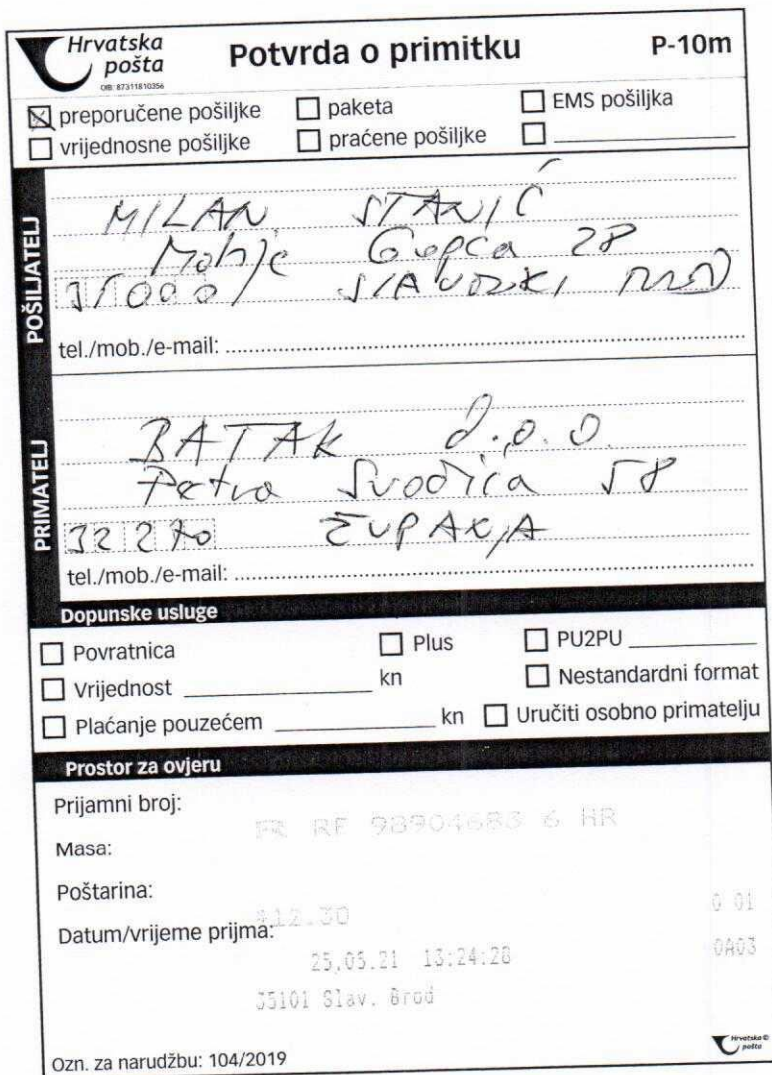 Hrvatska pošta
OIB: 87311810356
Potvrda o primitku
P-10m
preporučene pošiljke paketa EMS pošiljka
vrijednosne pošiljke praćene pošiljke
POŠILJATELJ
MILAN STANIĆ
Gupca 28
35000
tel./mob./e-mail:
PRIMATELJ
BATAK d.o.o.
Petra Svačića 58
32270 ŽUPANJA
tel./mob./e-mail:
Dopunske usluge
Povratnica Plus PU2PU
Vrijednost kn Nestandardni format
Plaćanje pouzećem kn Uručiti osobno primatelju
Prostor za ovjeru
Prijamni broj:
RF 98904683 6 HR
Masa:
Poštarina:
*12.30 0 01
Datum/vrijeme prijma:
25.05.21 13:24:28 0A03
35101 Slav. Brod
Ozn. za narudžbu: 104/2019
Hrvatska pošta